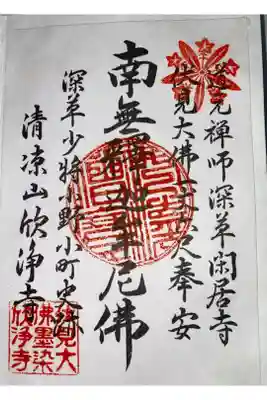 道元禅師深草閑居寺
伏見大佛 尺奉安
南無釋迦牟尼佛
深草少将小野小町史跡
清涼山欣浄寺
伏見大
佛墨染
欣浄寺